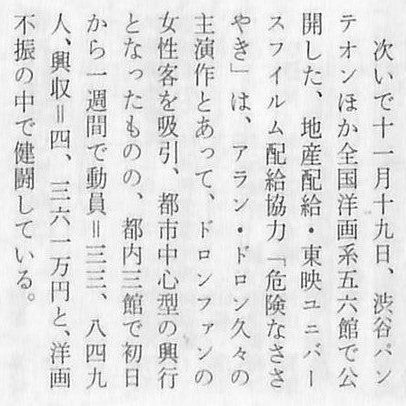 次いで十一月十九日、渋谷パン
テオンほか全国洋画系五六館で公
開した、地産配給・東映ユニバー
スフイルム配給協力「危険なささ
やき」は、アラン・ドロン久々の
主演作とあって、ドロンファンの
女性客を吸引、都市中心型の興行
となったものの、都内三館で初日
から一週間で動員＝三三、八四九
人、興収＝四、三六一万円と、洋画
不振の中で健闘している。